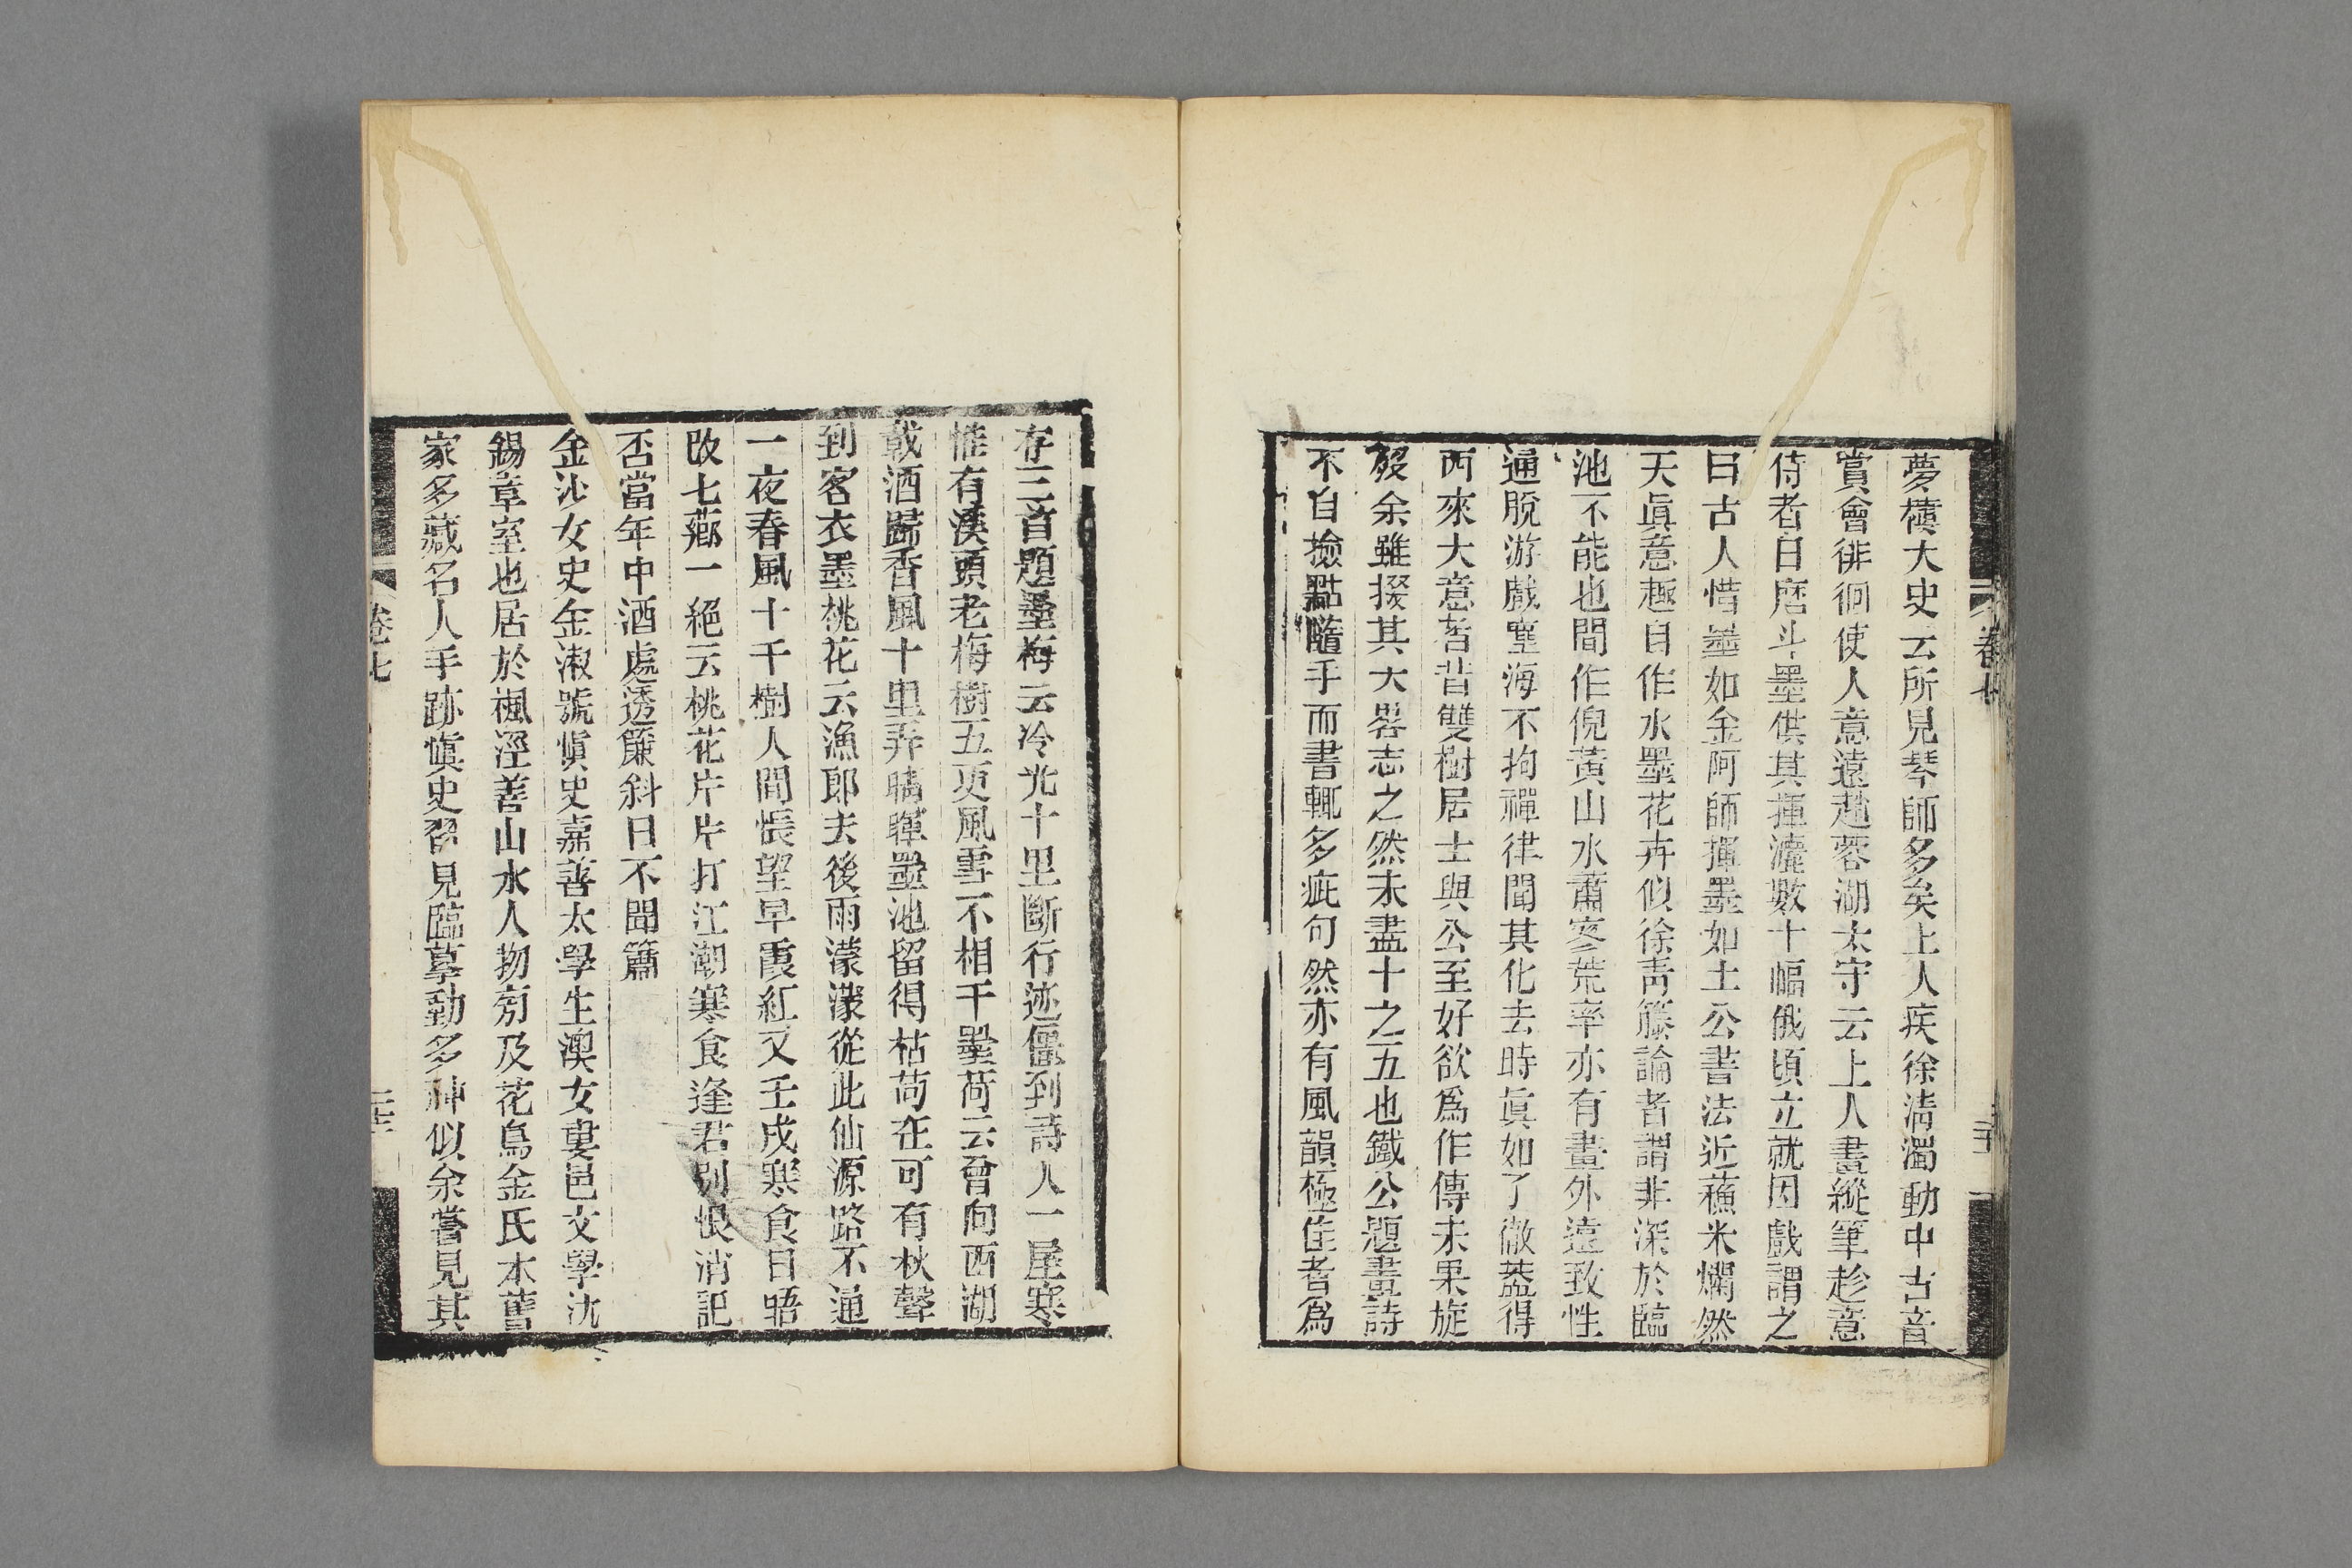 夢樓大史云所見琴師多矣上人疾徐清濁動中古音
賞會徘徊使人意遠趙蓉湖太守云上人畫縱筆趁意
侍者日磨斗墨供其揮灑數十幅俄頃立就因戲謂之
曰古人惜墨如金阿師揮墨如土公書法近蘓米爛然
天眞意趣自作水墨花卉似徐靑籐論者謂非深於臨
池不能也間作倪黃山水蕭寥荒率亦有畫外遠致性
通脫游戲塵海不拘禪律聞其化去時眞如了徹葢得
西來大意者昔雙樹居士與公至好欲爲作傳未果旋
歿余雖掇其大畧志之然未盡十之五也鐵公題畫詩
不自撿點隨手而書輒多疵句然亦有風韻極佳者爲
卷七
存三首題墨梅云冷光十里斷行迹僵到詩人一屋寒
惟有溪頭老梅樹五更風雪不相干墨荷云曾向西湖
載酒歸香風十里弄晴暉墨池留得枯荷在可有秋聲
到客衣墨桃花云漁郎去後雨濛濛從此仙源路不通
一夜春風十千樹人間悵望早霞紅又壬戌寒食日晤
改七薌一絕云桃花片片打江潮寒食逢君別恨消記
否當年中酒處透簾斜日不聞簫
金沙女史金淑號愼史嘉善太學生澳女婁邑文學沈
錫章室也居於楓涇善山水人物旁及花鳥金氏本舊
家多藏名人手跡愼史習見臨摹勤多神似余嘗見其
卷七